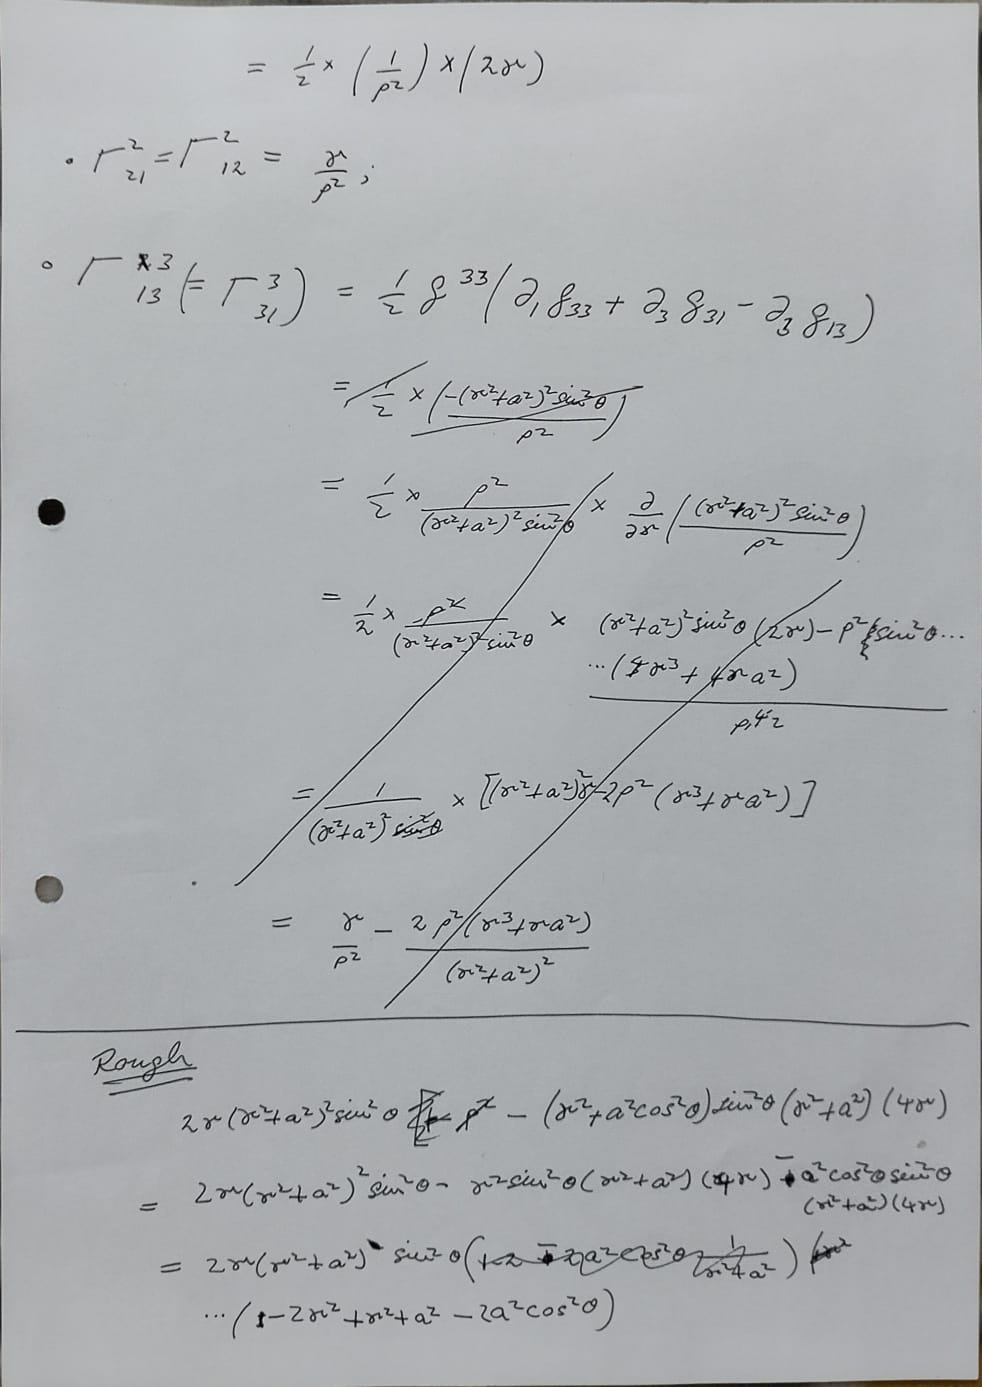 = 1/2 × (1/ρ²) × (2r)
• Γ²₂₁ = Γ²₁₂ = r/ρ² ;
∘ Γ³₁₃ (= Γ³₃₁) = 1/2 g³³ (∂₁g₃₃ + ∂₃g₃₁ − ∂₃g₁₃)
= 1/2 × (−(r²+a²)² sin²θ / ρ²)
= 1/2 × ρ²/((r²+a²)² sin²θ) × ∂/∂r ((r²+a²)² sin²θ / ρ²)
= 1/2 × ρ²/((r²+a²)² sin²θ) × (r²+a²)² sin²θ (2r) − ρ² { sin²θ ...
... (4r³ + 4ra²)
ρ⁴
= 1/((r²+a²)² sin²θ) × [(r²+a²)² r − 2ρ² (r³+ra²)]
= r/ρ² − 2ρ²(r³+ra²)/(r²+a²)²
Rough
2r(r²+a²)² sin²θ − (r²+a²cos²θ) sin²θ (r²+a²) (4r)
= 2r(r²+a²)² sin²θ − r² sin²θ (r²+a²) (4r) − a²cos²θ sin²θ
(r²+a²)(4r)
= 2r(r²+a²) sin²θ
... (−2r² + r² + a² − 2a²cos²θ)